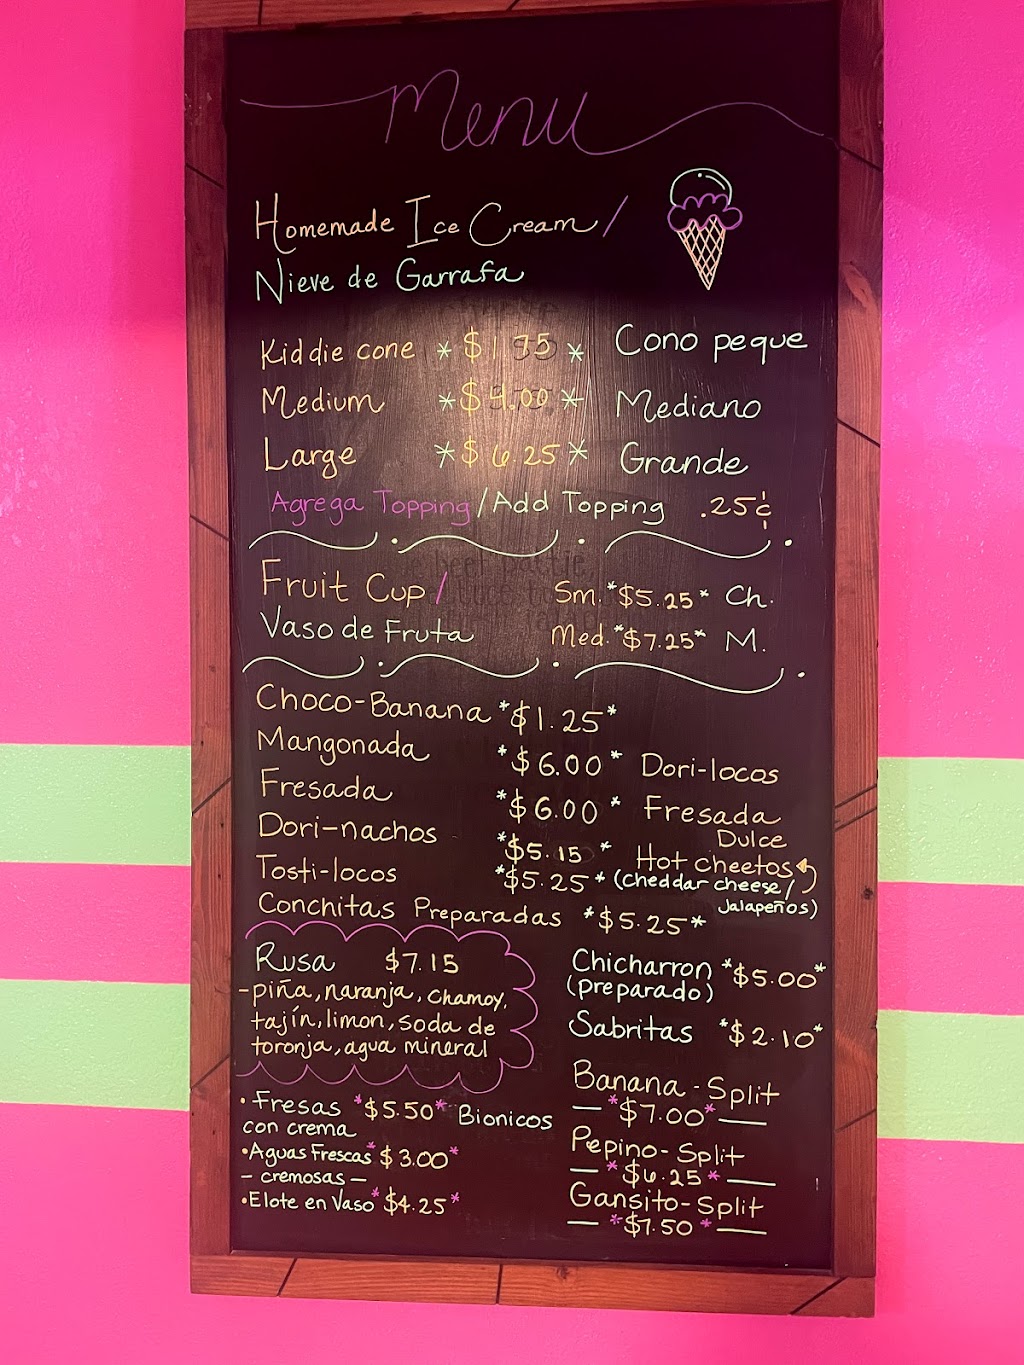 Menu
Homemade Ice Cream /
Nieve de Garrafa
Kiddie cone * $1.75 * Cono peque
Medium * $4.00 * Mediano
Large * $6.25 * Grande
Agrega Topping / Add Topping .25¢
Fruit Cup / Sm. * $5.25 * Ch.
Vaso de Fruta Med. * $7.25 * M.
Choco-Banana * $1.25 *
Mangonada * $6.00 * Dori-locos
Fresada * $6.00 * Fresada
Dulce
Dori-nachos * $5.15 * Hot cheetos
Tosti-locos * $5.25 * (cheddar cheese/
Jalapeños)
Conchitas Preparadas * $5.25 *
Rusa $7.15
- piña, naranja, chamoy,
tajín, limon, soda de
toronja, agua mineral
Chicharron * $5.00 *
(preparado)
Sabritas * $2.10 *
Banana - Split
— * $7.00 * —
Pepino - Split
— * $6.25 * —
Gansito - Split
— * $7.50 * —
• Fresas * $5.50 * Bionicos
con crema
• Aguas Frescas * $3.00 *
- cremosas -
• Elote en Vaso * $4.25 *